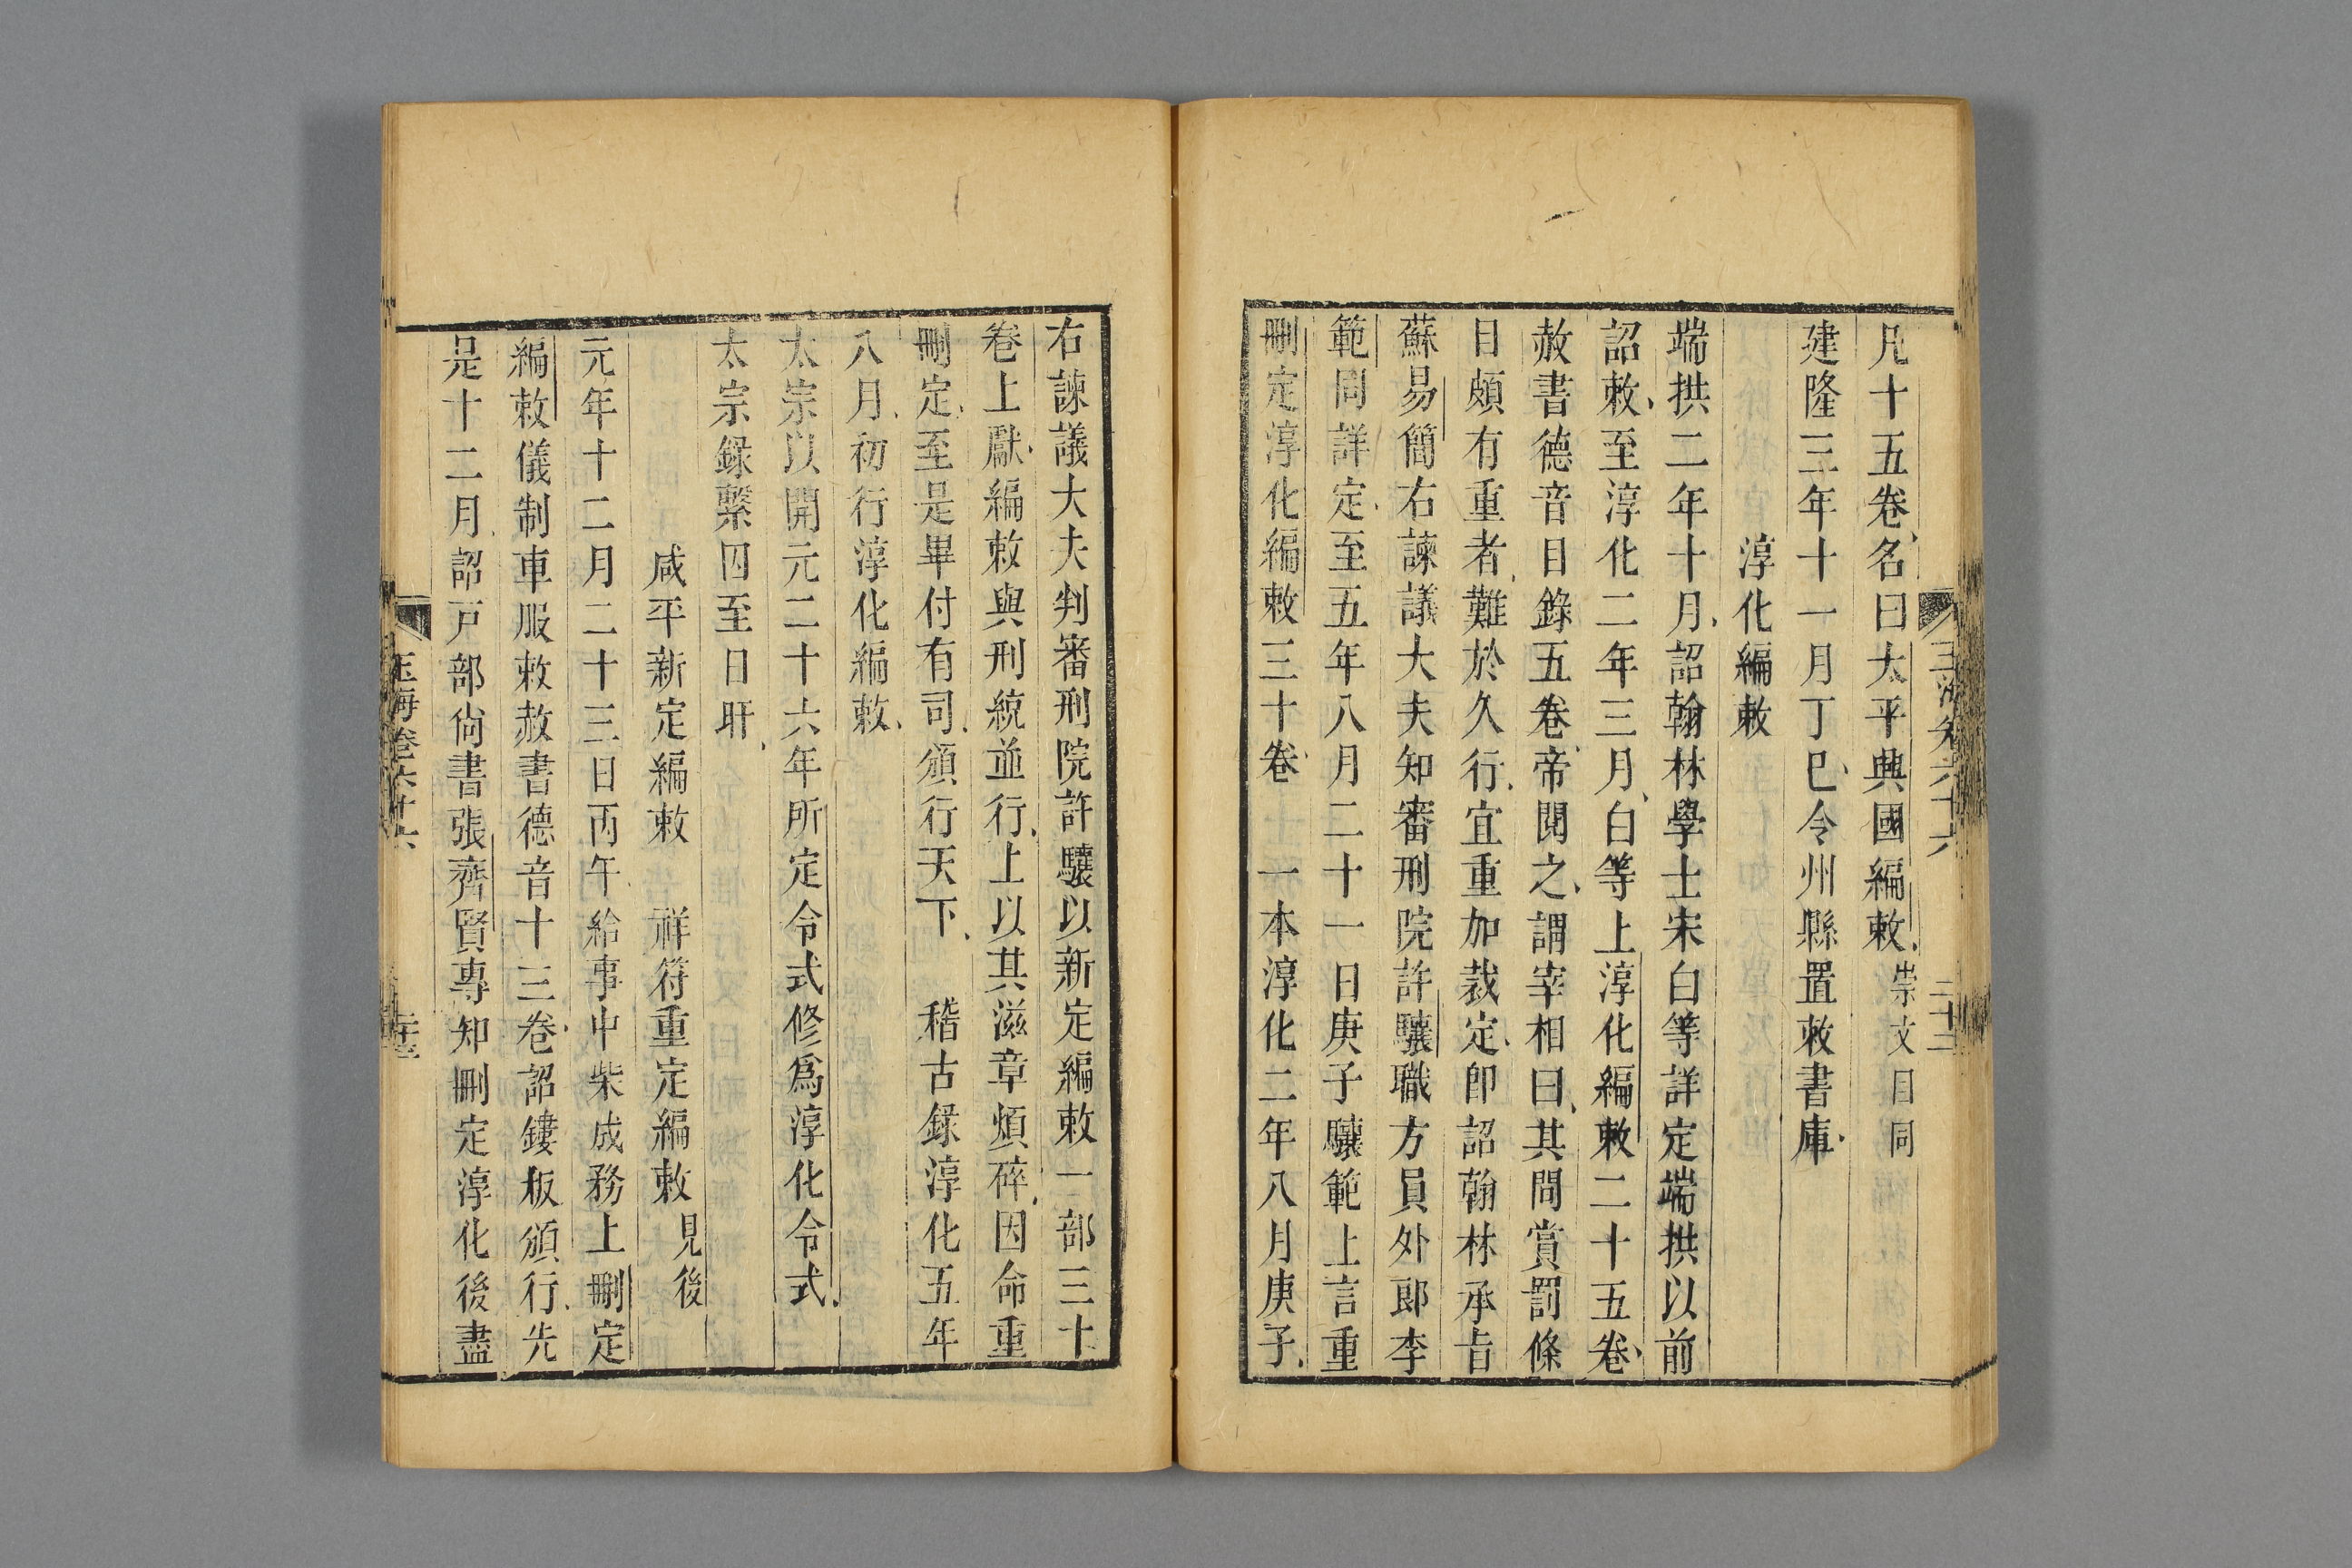 凡十五卷名曰太平興國編敕崇文目同
建隆三年十一月丁巳令州縣置敕書庫
淳化編敕
端拱二年十月詔翰林學士宋白等詳定端拱以前
詔敕至淳化二年三月白等上淳化編敕二十五卷
赦書德音目錄五卷帝閱之謂宰相曰其間賞罰條
目頗有重者難於久行宜重加裁定卽詔翰林承旨
蘇易簡右諫議大夫知審刑院許驤職方員外郎李
範同詳定至五年八月二十一日庚子驤範上言重
刪定淳化編敕三十卷 一本淳化二年八月庚子
右諫議大夫判審刑院許驤以新定編敕一部三十
卷上獻編敕與刑統並行上以其滋章煩碎因命重
刪定至是畢付有司頒行天下 稽古録淳化五年
八月初行淳化編敕
太宗以開元二十六年所定令式修爲淳化令式
太宗録繫囚至日旰
咸平新定編敕 祥符重定編敕見後
元年十二月二十三日丙午給事中柴成務上刪定
編敕儀制車服敕赦書德音十三卷詔鏤板頒行先
是十二月詔戸部尙書張齊賢專知刪定淳化後盡
玉海卷六十六